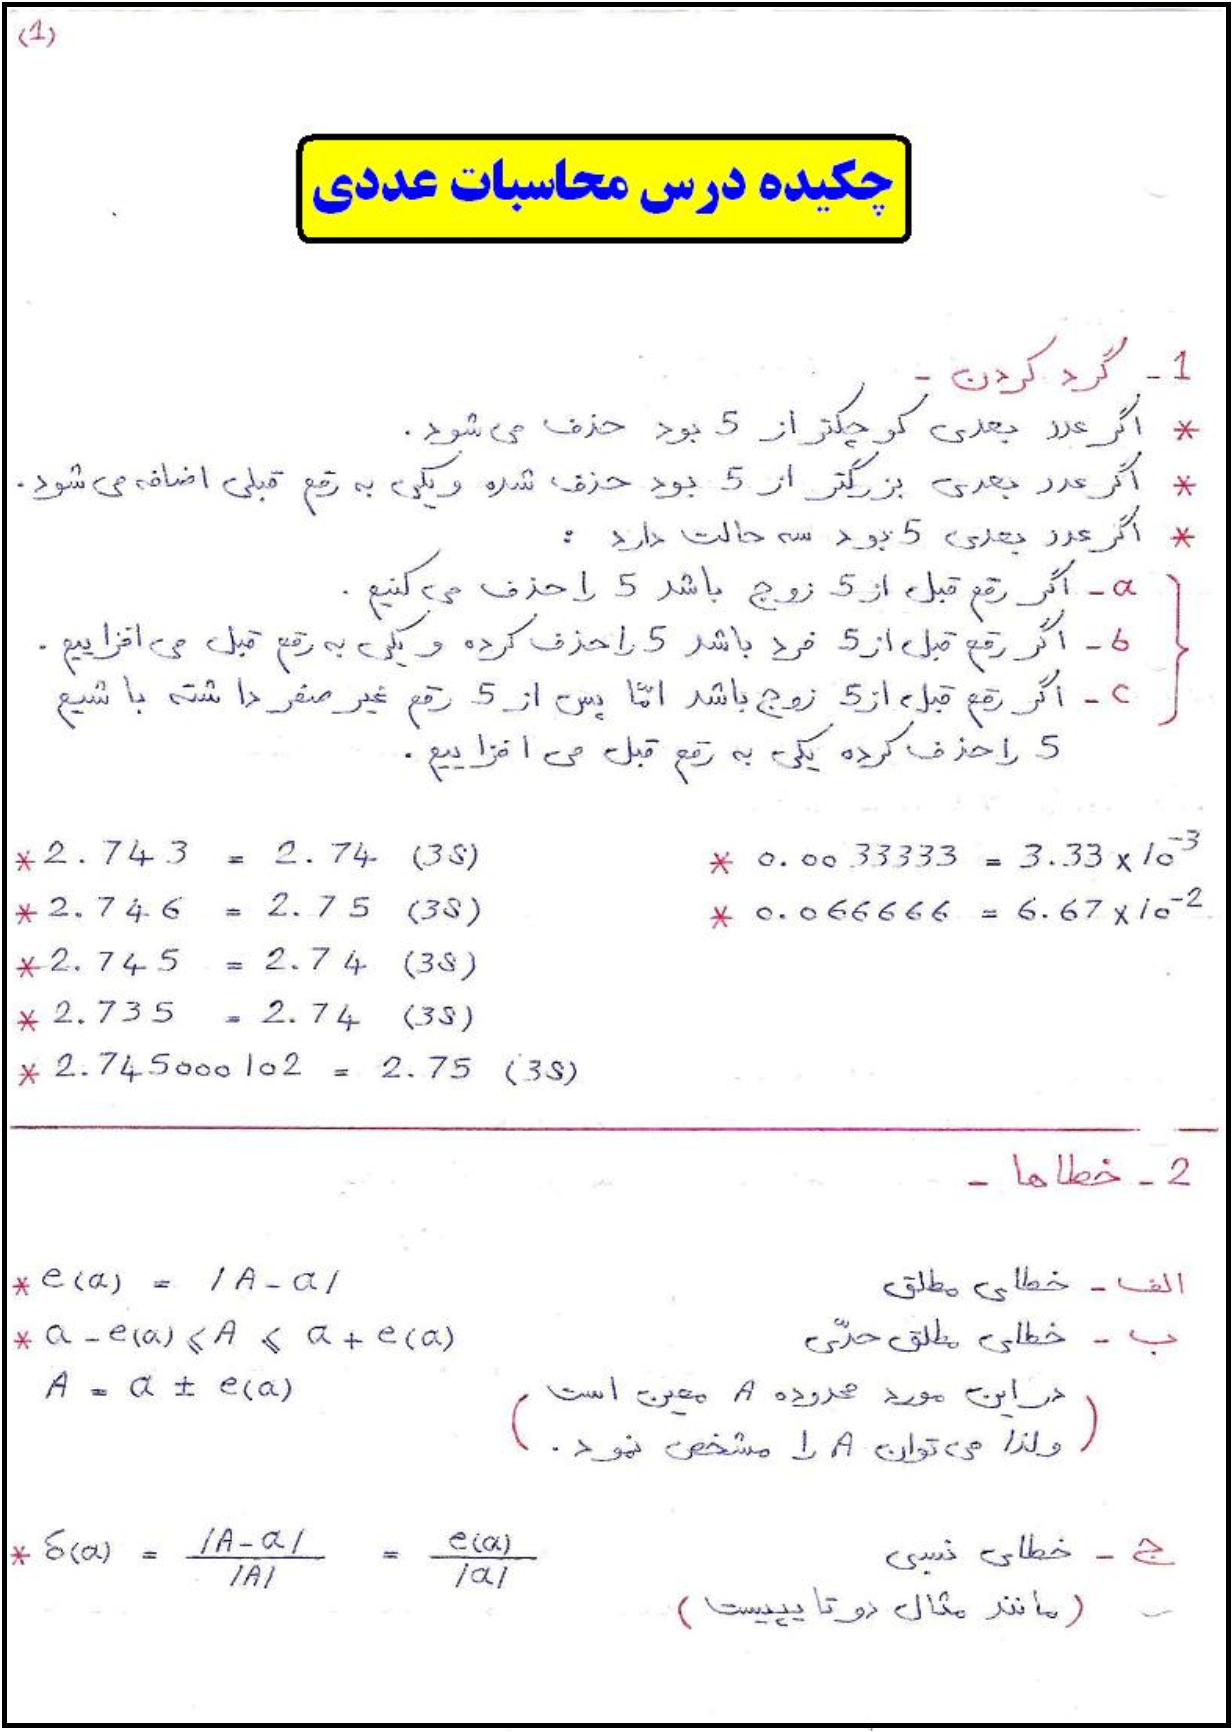 (1)
چکیده درس محاسبات عددی
1 - گرد کردن -
* اگر عدد بعدی کوچکتر از 5 بود حذف می شود.
* اگر عدد بعدی بزرگتر از 5 بود حذف شده و یکی به رقم قبلی اضافه می شود.
* اگر عدد بعدی 5 بود سه حالت دارد :
a - اگر رقم قبل از 5 زوج باشد 5 را حذف می کنیم .
b - اگر رقم قبل از 5 فرد باشد 5 را حذف کرده و یکی به رقم قبل می افزاییم .
c - اگر رقم قبل از 5 زوج باشد امّا پس از 5 رقم غیر صفر داشته باشیم
5 را حذف کرده یکی به رقم قبل می افزاییم .
* 2.743 = 2.74 (3S)
* 0.0033333 = 3.33 x 10^-3
* 2.746 = 2.75 (3S)
* 0.066666 = 6.67 x 10^-2
* 2.745 = 2.74 (3S)
* 2.735 = 2.74 (3S)
* 2.745000102 = 2.75 (3S)
2 - خطاها -
الف - خطای مطلق
* e(a) = |A - a|
ب - خطای مطلق حدّی
* a - e(a) ⩽ A ⩽ a + e(a)
(در این مورد محدوده A معین است
A = a ± e(a)
ولذا می توان A را مشخص نمود .)
ج - خطای نسبی
* δ(a) = |A - a| / |A| = e(a) / |a|
(مانند مثال دو تایپیست)